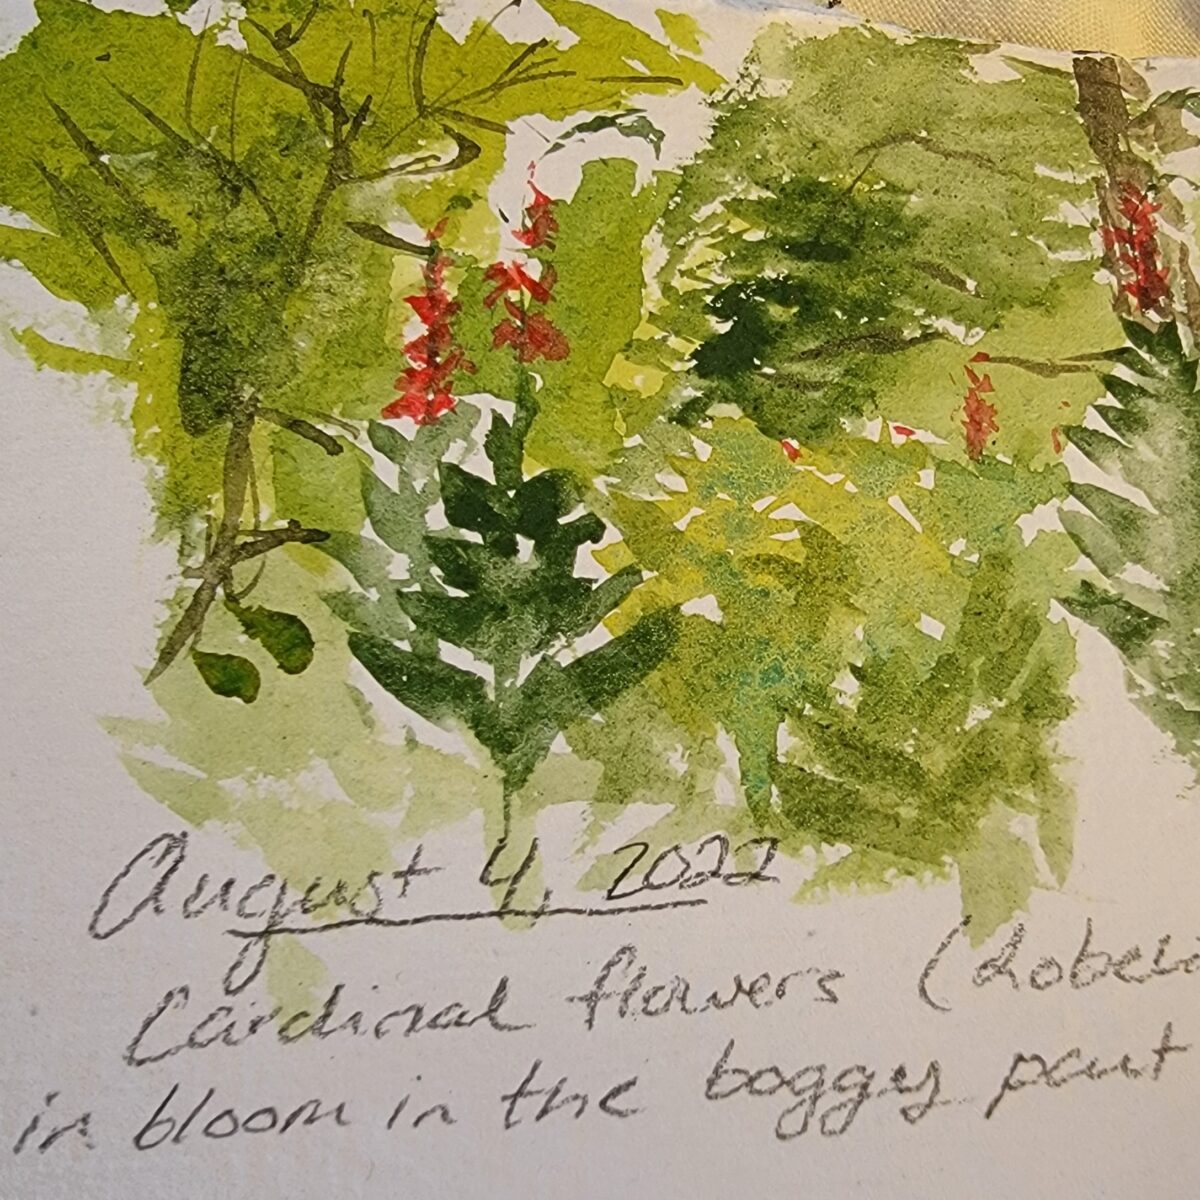 August 4, 2022
Cardinal flowers (Lobelia
in bloom in the boggy part